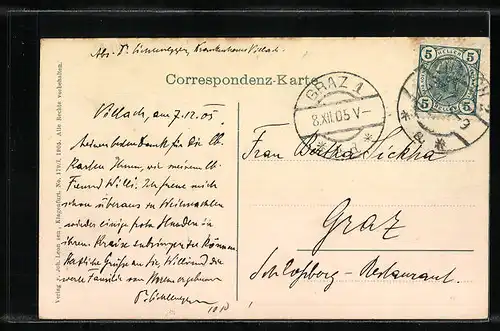 Abs. Dr. Krankenhaus Villach.
Correspondenz-Karte
5 HELLER 5
5 5
GRAZ 1
8.XII.05 V-
* d *
* a *
3
Villach, am 7.12.05.
für die lb.
Karten Ihnen, wie meinem lb.
Freund Willi. Ich freue mich
schon überaus zu Weihnachten
wieder einige frohe Stunden in
ihrem Kreise zubringen zu können
Herzliche Grüße an Sie, Willi und die
werte Familie von Ihrem ergebenen
1010
Frau Bertha Sickha
Graz
Schloßberg-Restaurant.
Verlag v. Joh. Leon sen., Klagenfurt. No. 1793, 1905. Alle Rechte vorbehalten.